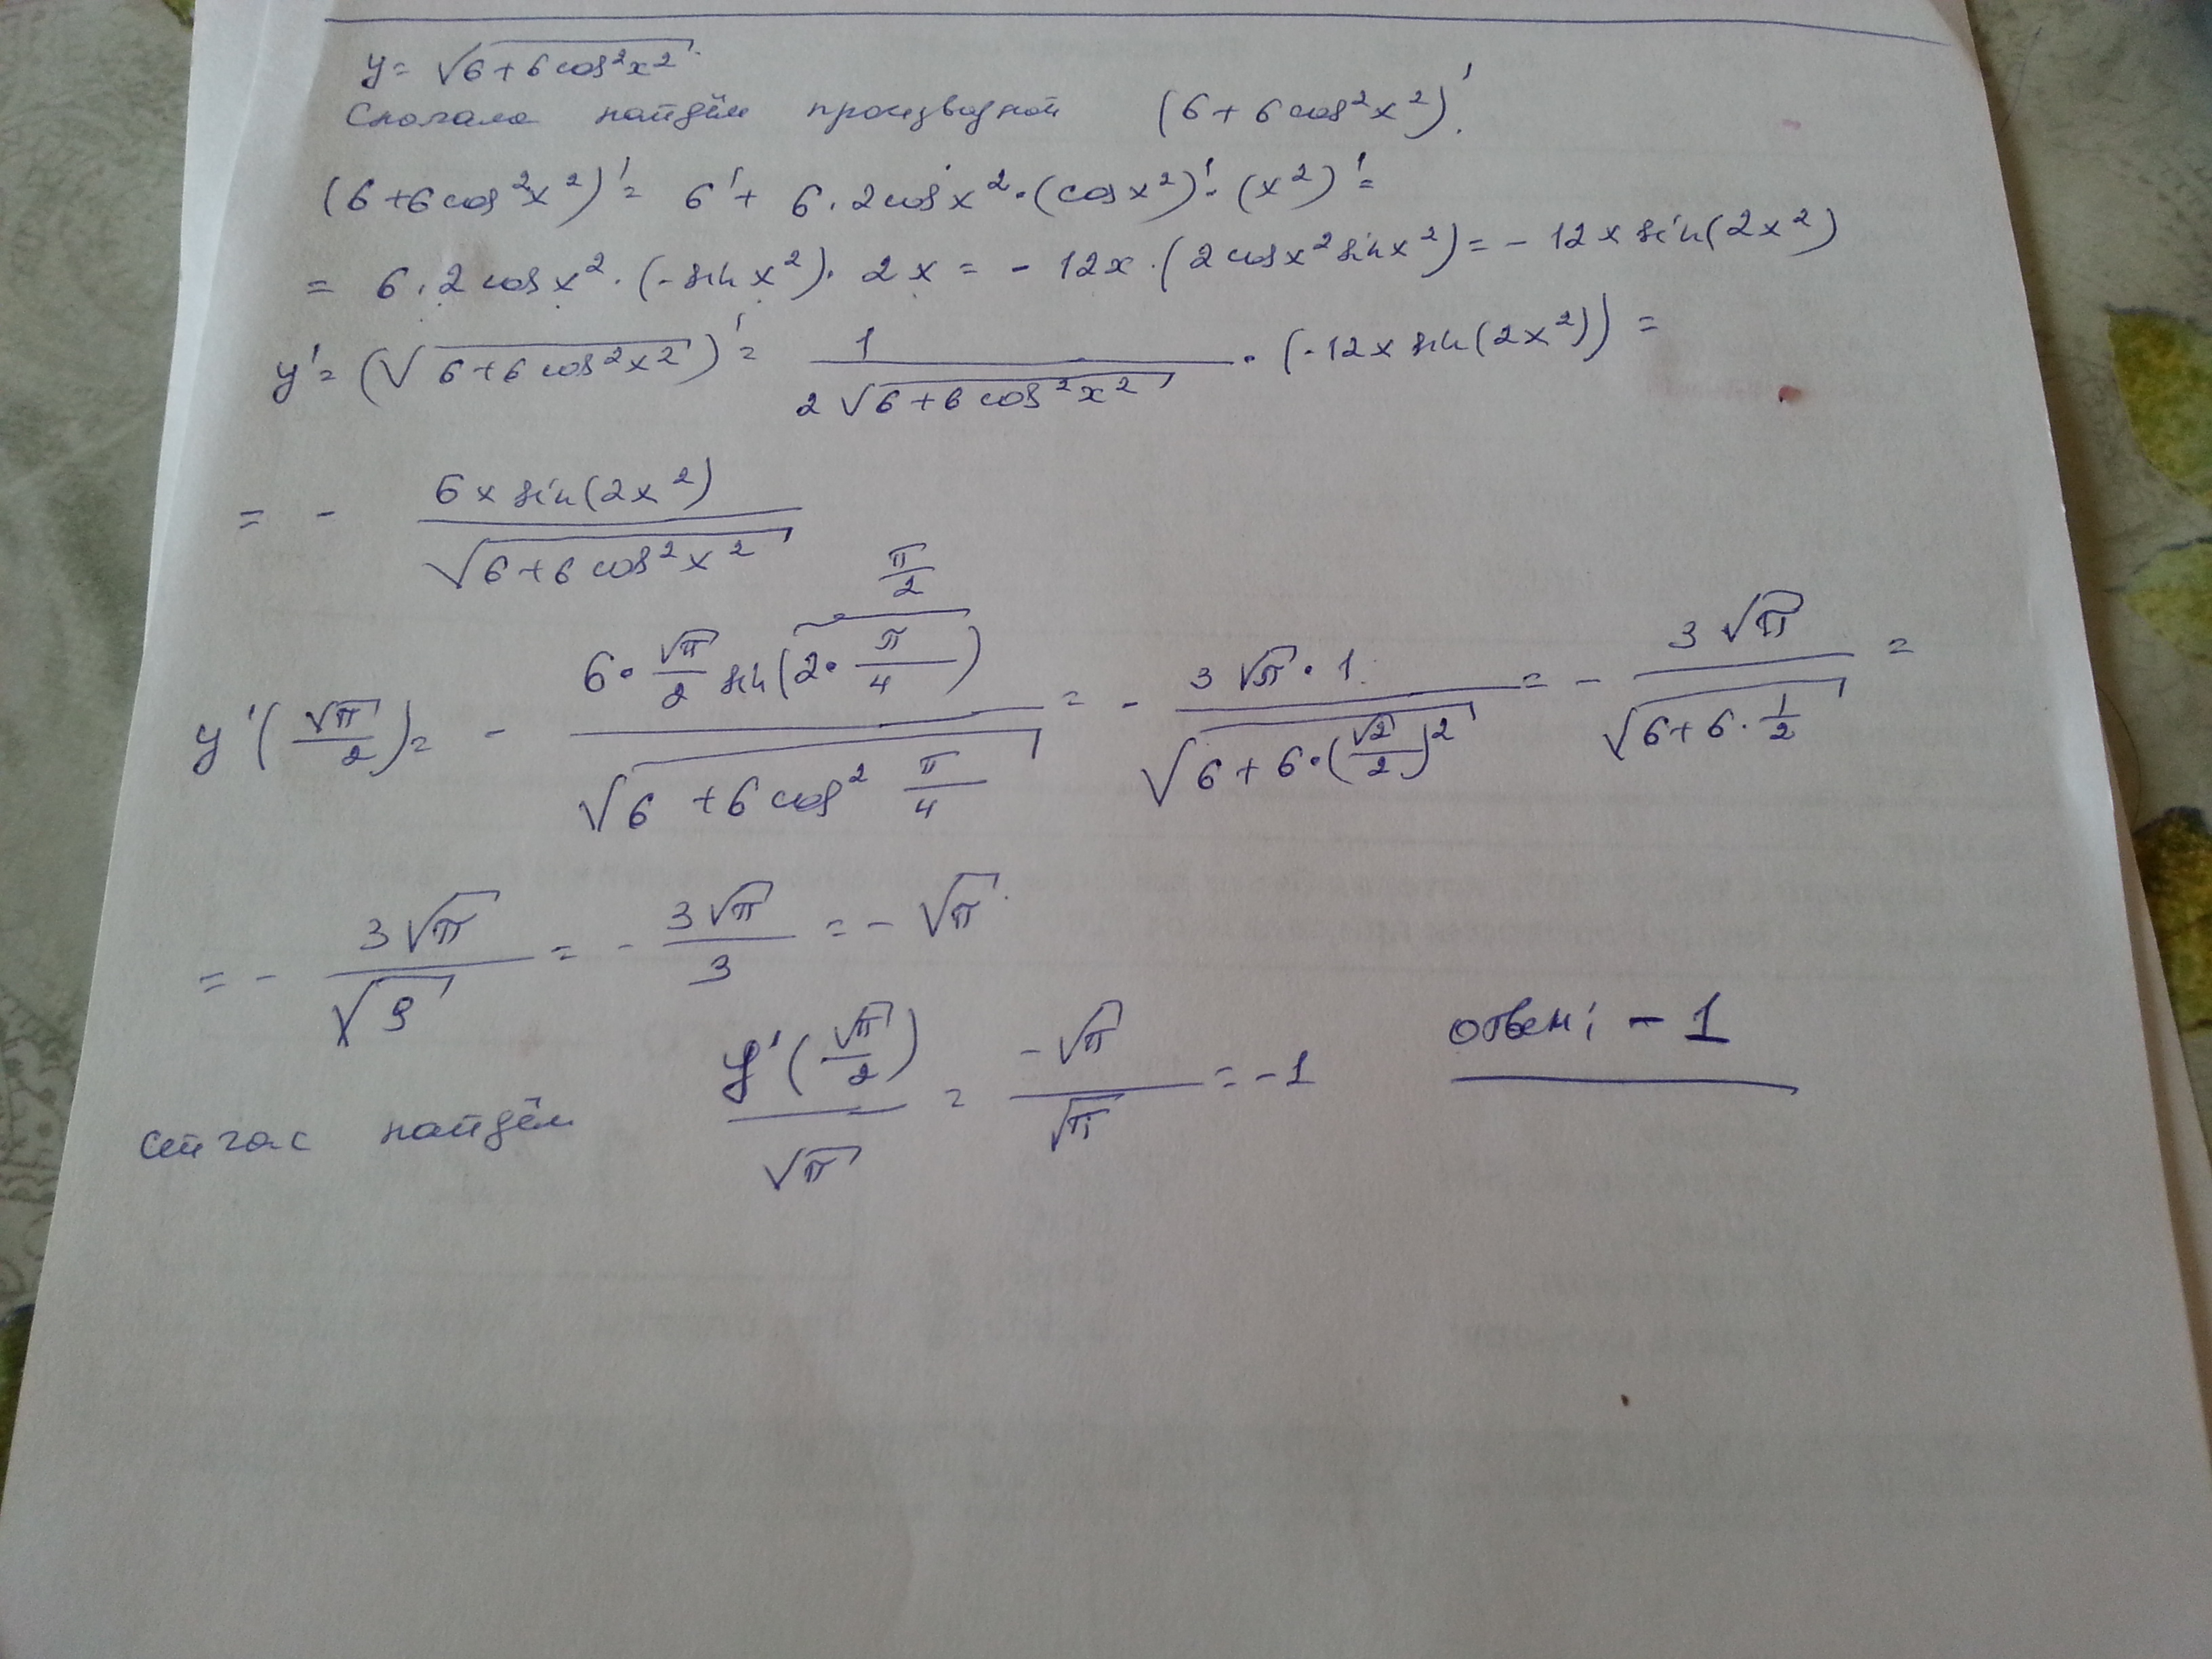 y = √(6+6cos²x²)
Сначала найдём производной (6+6cos²x²)'.
(6+6cos²x²)' = 6' + 6·2cosx²·(cosx²)'·(x²)' =
= 6·2cosx²·(-sinx²)·2x = -12x·(2cosx²sinx²) = -12x sin(2x²)
y' = (√(6+6cos²x²))' = 1/(2√(6+6cos²x²)) · (-12x sin(2x²)) =
= - (6x sin(2x²))/√(6+6cos²x²)
π/2
y'(√π/2) = - (6·√π/2 sin(2·π/4))/√(6+6cos² π/4) = - (3√π·1)/√(6+6·(√2/2)²) = - 3√π/√(6+6·1/2) =
= - 3√π/√9 = - 3√π/3 = -√π.
Сейчас найдём y'(√π/2)/√π = -√π/√π = -1 ответ: -1